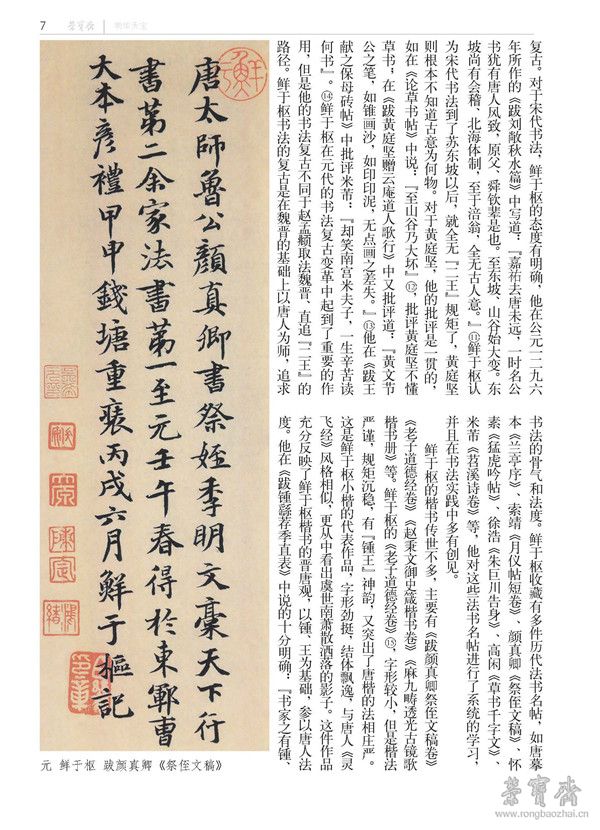 7
荣宝斋
物华天宝
复古。对于宋代书法，鲜于枢的态度有明确，他在公元一二九六
年所作的《跋刘敞秋水篇》中写道：『嘉祐去唐未远，一时名公
书犹有唐人风致，原父、舜钦辈是也。至东坡、山谷始大变。东
坡尚有会稽、北海体制，至于涪翁，全无古人意。』⑪鲜于枢认
为宋代书法到了苏东坡以后，就全无『二王』规矩了，黄庭坚
则根本不知道古意为何物。对于黄庭坚，他的批评是一贯的，
如在《论草书帖》中说：『至山谷乃大坏』⑫，批评黄庭坚不懂
草书；在《跋黄庭坚赠云庵道人歌行》中又批评道：『黄文节
公之笔，如锥画沙，如印印泥，无点画之差失。』⑬他在《跋王
献之保母砖帖》中批评米芾：『却笑南宫米夫子，一生辛苦读
何书』。⑭鲜于枢在元代的书法复古变革中起到了重要的作
用，但是他的书法复古不同于赵孟頫取法魏晋，直追『二王』的
路径。鲜于枢书法的复古是在魏晋的基础上以唐人为师，追求
书法的骨气和法度。鲜于枢收藏有多件历代法书名帖，如唐摹
本《兰亭序》、索靖《月仪帖短卷》、颜真卿《祭侄文稿》、怀
素《猛虎吟帖》、徐浩《朱巨川告身》、高闲《草书千字文》、
米芾《苕溪诗卷》等，他对这些法书名帖进行了系统的学习，
并且在书法实践中多有创见。
鲜于枢的楷书传世不多，主要有《跋颜真卿祭侄文稿卷》
《老子道德经卷》《赵秉文御史箴楷书卷》《麻九畴透光古镜歌
楷书册》等。鲜于枢的《老子道德经卷》⑮，字形较小，但是楷法
严谨，规矩沉稳，有『锺王』神韵，又突出了唐楷的法相庄严。
这是鲜于枢小楷的代表作品，字形劲挺，结体飘逸，与唐人《灵
飞经》风格相似，更从中看出虞世南萧散洒落的影子。这件作品
充分反映了鲜于枢楷书的晋唐观，以锺、王为基础，参以唐人法
度。他在《跋锺繇荐季直表》中说的十分明确：『书家之有锺、
唐太師魯公顏真卿書祭姪季明文稾天下行
書第二余家法書第一至元壬午春得於東鄆曹
大本彥禮甲申錢塘重裝丙戌六月鮮于樞記
元 鲜于枢 跋颜真卿《祭侄文稿》
荣宝斋
www.rongbaozhai.cn